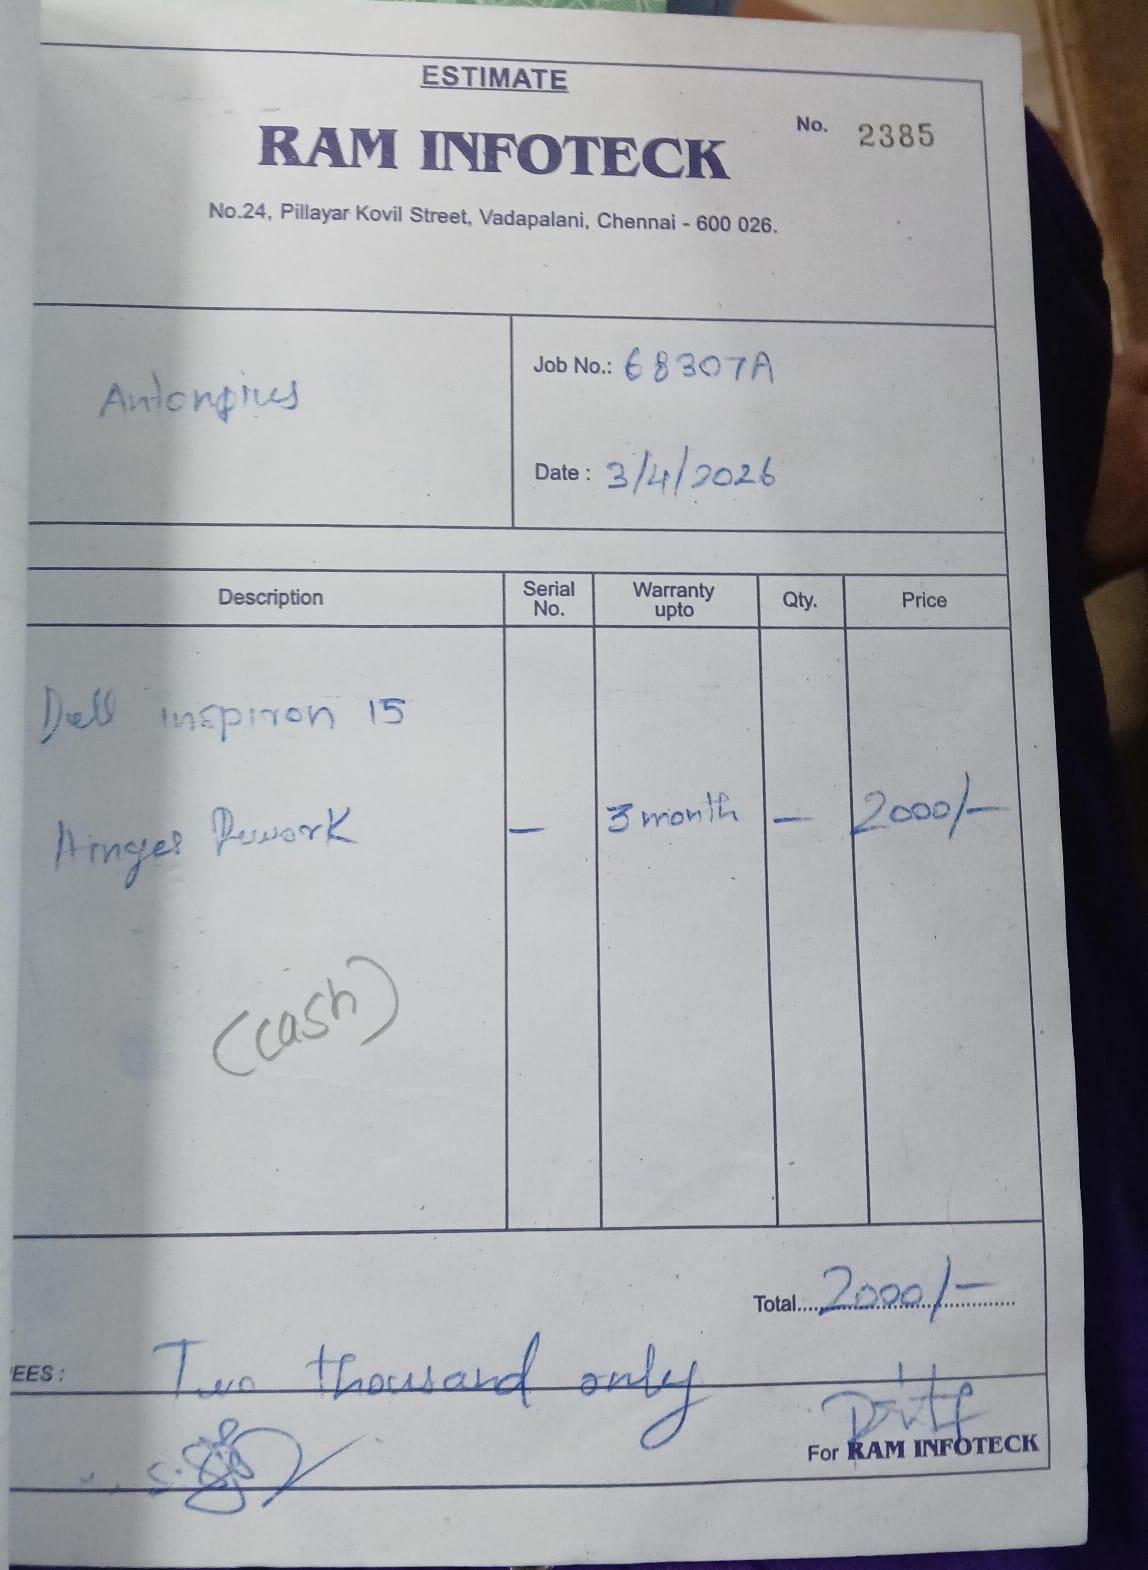 ESTIMATE
RAM INFOTECK
No. 2385
No.24, Pillayar Kovil Street, Vadapalani, Chennai - 600 026.
Antonpius
Job No.: 68307A
Date : 3/4/2026
Description Serial No. Warranty upto Qty. Price
Dell inspiron 15
Hinges Rework — 3 month — 2000/-
(cash)
Total.... 2000/-
EES : Two thousand only
For RAM INFOTECK